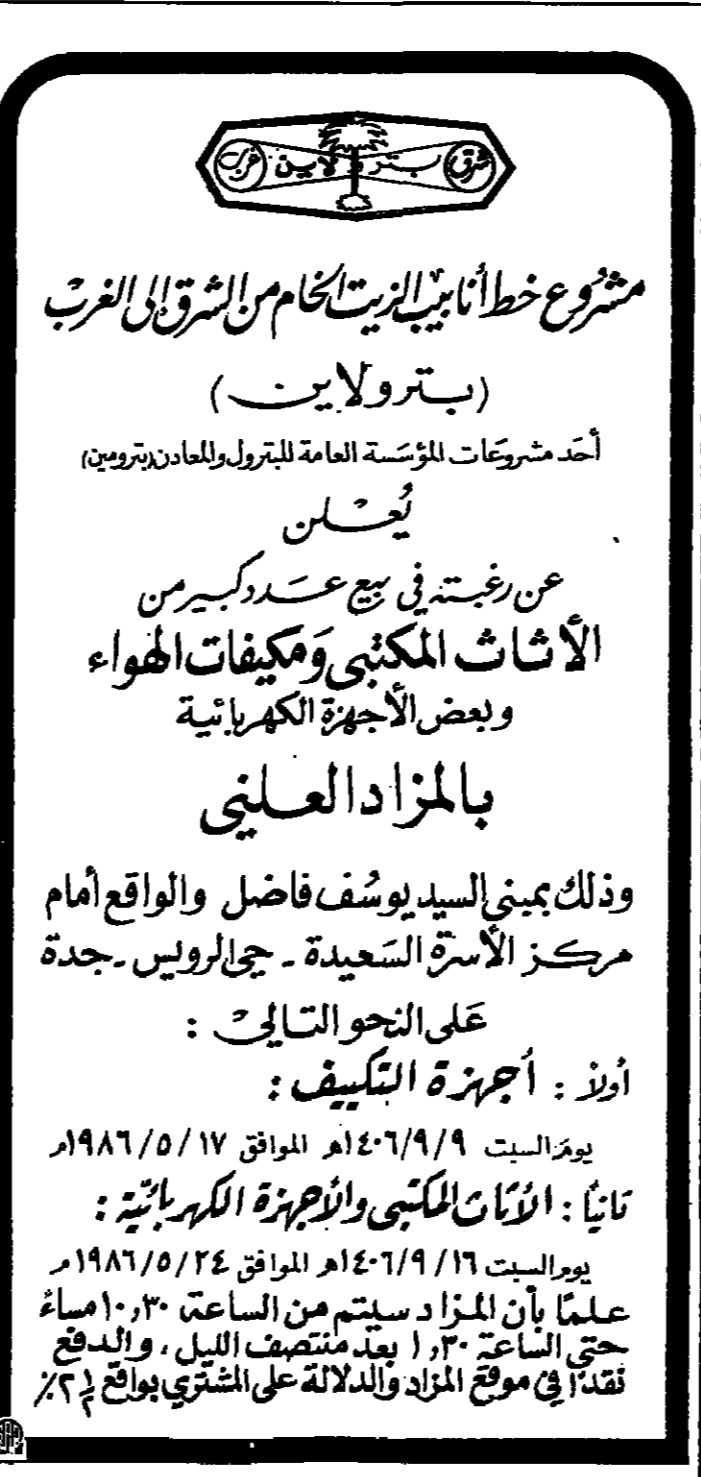 شرق بترولاين غرب
مشروع خط أنابيب الزيت الخام من الشرق إلى الغرب
(بترولاين)
أحد مشروعات المؤسسة العامة للبترول والمعادن (بترومين)
يُعلن
عن رغبته في بيع عدد كبير من
الأثاث المكتبي ومكيفات الهواء
وبعض الأجهزة الكهربائية
بالمزاد العلني
وذلك بمبنى السيد يوسُف فاضل والواقع أمام
مركز الأسرة السَعيدة - حي الرويس - جدة
عَلى النحو التالي :
أولاً : أجهزة التكييف :
يوم السبت ١٤٠٦/٩/٩هـ الموافق ١٩٨٦/٥/١٧م
ثانياً : الأثاث المكتبي والأجهزة الكهربائية :
يوم السبت ١٤٠٦/٩/١٦هـ الموافق ١٩٨٦/٥/٢٤م
علمًا بأن المزاد سيتم من الساعة ١٠,٣٠ مساءً
حتى الساعة ١,٣٠ بعد منتصف الليل ، والدفع
نقدًا في موقع المزاد والدلالة على المشتري بواقع ٢½٪